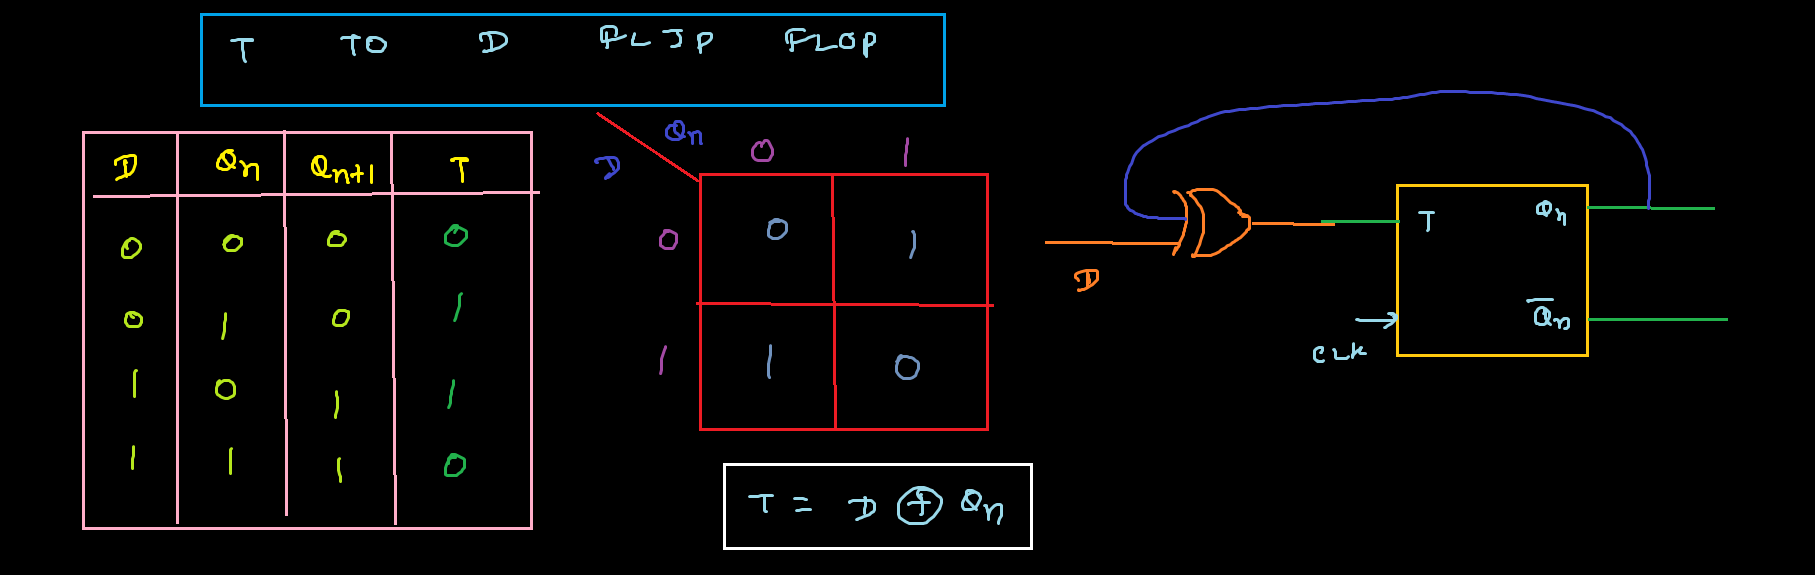 T TO D FLIP FLOP
D Qn Qn+1 T
0 0 0 0
0 1 0 1
1 0 1 1
1 1 1 0
Qn
D
0 1
0 0 1
1 1 0
T = D ⊕ Qn
D
T Qn
CLK
Q̅n